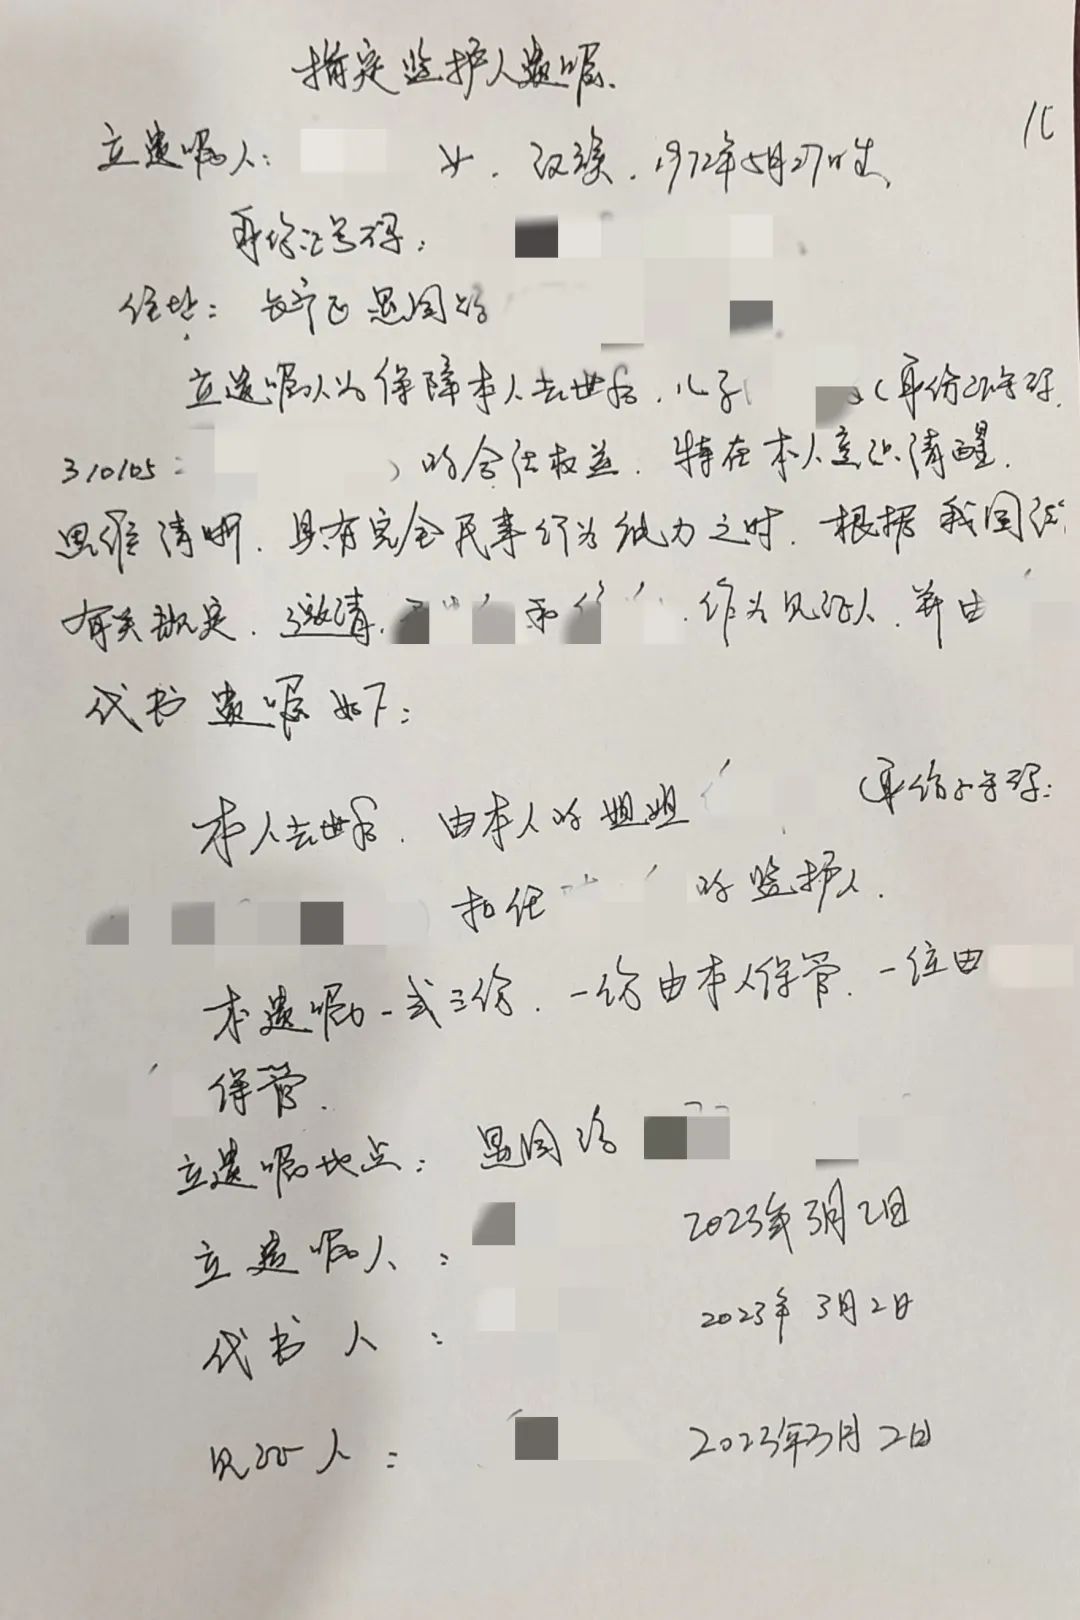 指定监护人遗嘱.
立遗嘱人: 女. 汉族. 1972年5月27日生
身份证号码:
住址: 长宁区 愚园路
立遗嘱人为保障本人去世后. 儿子 (身份证号码.
310105 ) 的合法权益. 特在本人意识清醒.
思维清晰. 具有完全民事行为能力之时. 根据我国
有关规定. 邀请 和 作为见证人. 并由
代书遗嘱如下:
本人去世后. 由本人的姐姐 (身份证号码:
担任 的监护人.
本遗嘱一式三份. 一份由本人保管. 一位由
保管.
立遗嘱地点: 愚园路
立遗嘱人: 2023年3月2日
代书人: 2023年3月2日
见证人: 2023年3月2日